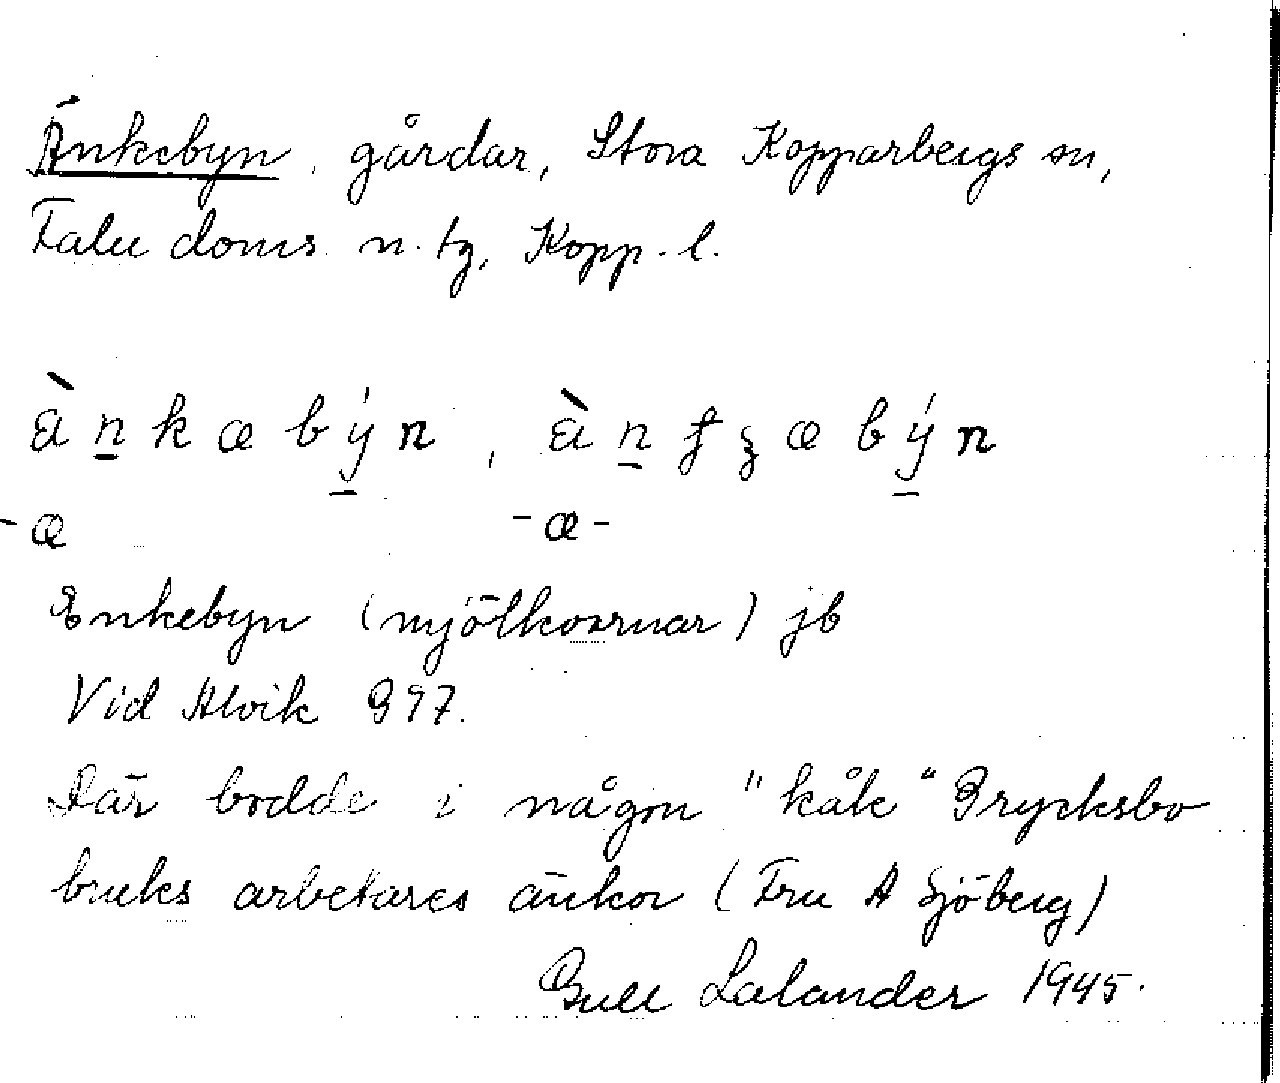 Änkebyn, gårdar, Stora Kopparbergs sn,
Falu doms. n. tg, Kopp. l.
Enkebyn (mjölkvarnar) jb
Vid Alvik 997.
Där bodde i någon "kåk" Grycksbo
bruks arbetares änkor (Fru A Sjöberg)
Gull Lalander 1945.